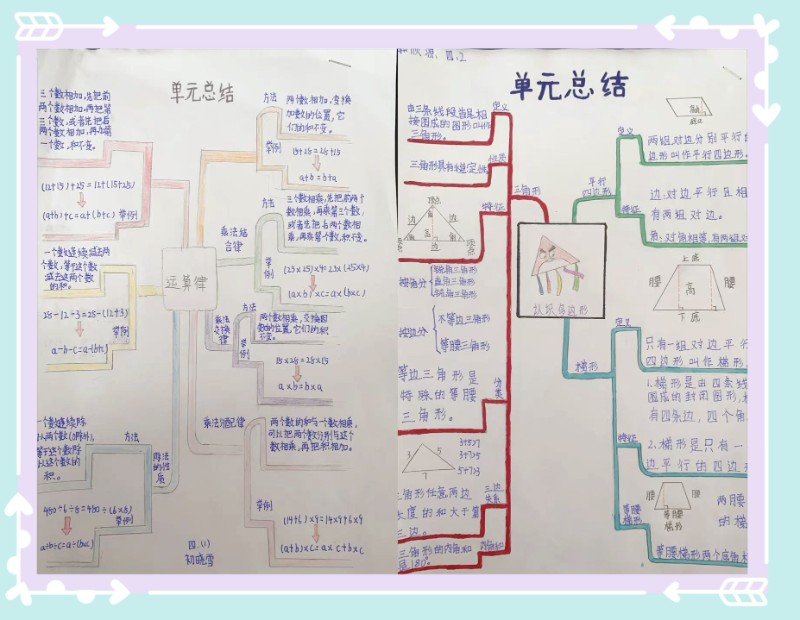 单元总结
三个数相加,先把前
两个数相加,再把第
三个数,或者先把后
两个数相加,再加第
一个数,和不变。
(12+15)+25=12+(15+25)
(a+b)+c=a+(b+c)
举例
一个数连续减去两
个数,等于这个数
减去这两个数
的和。
25-12-3=25-(12+3)
举例
a-b-c=a-(b+c)
一个数连续除
以两个数(0除外),
等于这个数除
以这个数的
积。
方法
除法
的性
质
举例
a÷b÷c=a÷(b×c)
运算律
方法
两个数相加,交换
加数的位置,它
们的和不变。
举例
15+25=25+15
a+b=b+a
乘法结
合律
方法
三个数相乘,先把前两个
数相乘,再乘第三个数,
或者先把后两个数相
乘,再乘第一个数,积不变。
举例
(23×25)×4=23×(25×4)
(a×b)×c=a×(b×c)
乘法
交换
律
方法
两个数相乘,交换因
数的位置,它们的积
不变。
举例
15×25=25×15
a×b=b×a
乘法分配律
两个数的和与一个数相乘,
可以把两个数分别与这个
数相乘,再把积相加。
举例
(14+6)×9=14×9+6×9
(a+b)×c=a×c+b×c
四(1)
初晓雪
单元总结
由三条线段首尾相
接围成的图形叫作
三角形。
定义
三角形具有稳定性
性质
三角形
特征
顶点
边
边
角
角
边
按角分
锐角三角形
直角三角形
钝角三角形
按边分
不等边三角形
等腰三角形
等边三角形是
特殊的等腰
三角形。
分类
3
5
7
3+5>7
3+7>5
5+7>3
三角形任意两边
长度的和大于第
三边。
三边
关系
三角形的内角和
是180°。
内角和
认识多边形
平行
四边形
高
底
定义
两组对边分别平行的
边形叫作平行四边形。
特征
边:对边平行且相
有两组对边。
角:对角相等,有两组对
梯形
上底
腰
高
腰
下底
定义
只有一组对边平行
四边形叫作梯形
特征
1.梯形是由四条线
围成的封闭图形,
有四条边,四个角
2.梯形是只有一
边平行的四边
等腰
梯形
腰
腰
等腰
梯形
两腰
的梯
等腰梯形两个底角